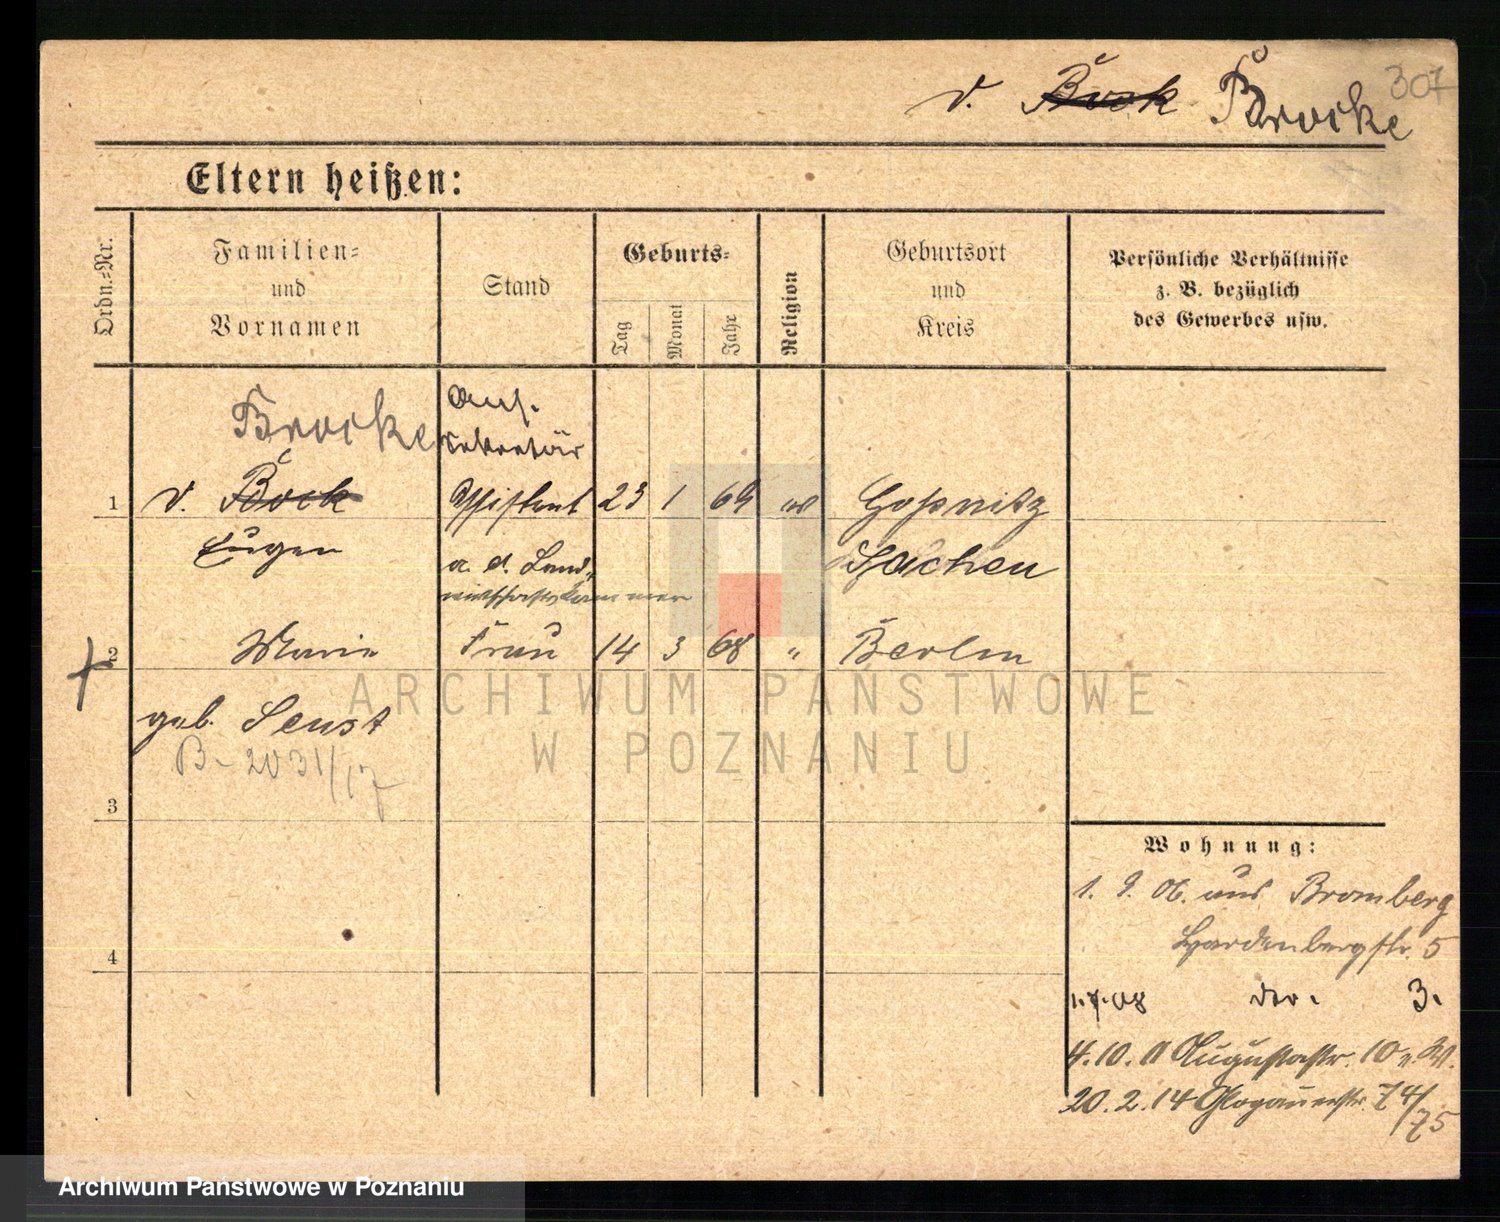 307
v. Bock Brocke
Eltern heißen:
Ordn.=Nr.
Familien=
und
Vornamen
Stand
Geburts=
Tag
Monat
Jahr
Religion
Geburtsort
und
Kreis
Persönliche Verhältnisse
z. B. bezüglich
des Gewerbes usw.
Brocke
sekretär
1 v. Bock Assistent 23 1 69 Goßnitz
Eugen a. d. Land=
wirthschaftskammer
Sachen
2 Marie Frau 14 3 68 " Berlin
geb. Senst
B-2031/17
3
4
Wohnung:
1. 9. 06. aus Bromberg
Hardenbergstr. 5
1.7.08 3.
4.10.11 Augustastr. 10
20.2.14 Glogauerstr. 74/
75
ARCHIWUM PAŃSTWOWE
W POZNANIU
Archiwum Państwowe w Poznaniu